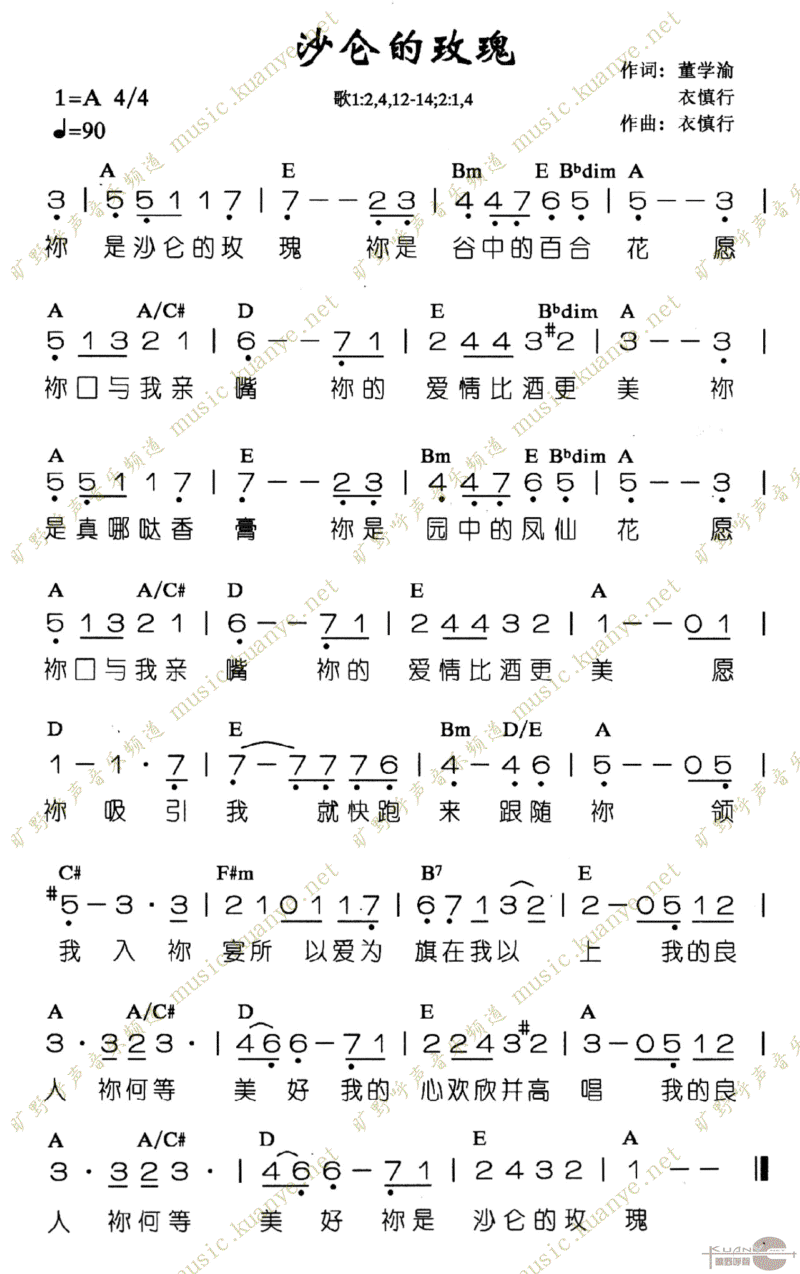 沙仑的玫瑰
作词：董学渝
1=A 4/4
歌1:2,4,12-14;2:1,4
衣慎行
♩=90
作曲：衣慎行
A E Bm E Bᵇdim A
3 | 5 5 1 1 7 | 7 - - 2 3 | 4 4 7 6 5 | 5 - - 3 |
祢 是沙仑的玫 瑰 祢是 谷中的百合 花 愿
A A/C# D E Bᵇdim A
5 1 3 2 1 | 6 - - 7 1 | 2 4 4 3 #2 | 3 - - 3 |
祢口与我亲 嘴 祢的 爱情比酒更 美 祢
A E Bm E Bᵇdim A
5 5 1 1 7 | 7 - - 2 3 | 4 4 7 6 5 | 5 - - 3 |
是真哪哒香 膏 祢是 园中的凤仙 花 愿
A A/C# D E A
5 1 3 2 1 | 6 - - 7 1 | 2 4 4 3 2 | 1 - - 0 1 |
祢口与我亲 嘴 祢的 爱情比酒更 美 愿
D E Bm D/E A
1 - 1 · 7 | 7 - 7 7 7 6 | 4 - 4 6 | 5 - - 0 5 |
祢 吸 引 我 就快跑 来 跟随 祢 领
C# F#m B⁷ E
#5 - 3 · 3 | 2 1 0 1 1 7 | 6 7 1 3 2 | 2 - 0 5 1 2 |
我 入 祢 宴所 以爱为 旗在我以 上 我的良
A A/C# D E A
3 · 3 2 3 · | 4 6 6 - 7 1 | 2 2 4 3 #2 | 3 - 0 5 1 2 |
人 祢何等 美 好 我的 心欢欣并高 唱 我的良
A A/C# D E A
3 · 3 2 3 · | 4 6 6 - 7 1 | 2 4 3 2 | 1 - - ‖
人 祢何等 美 好 祢是 沙仑的玫 瑰
旷野呼声音乐频道 music.kuanye.net